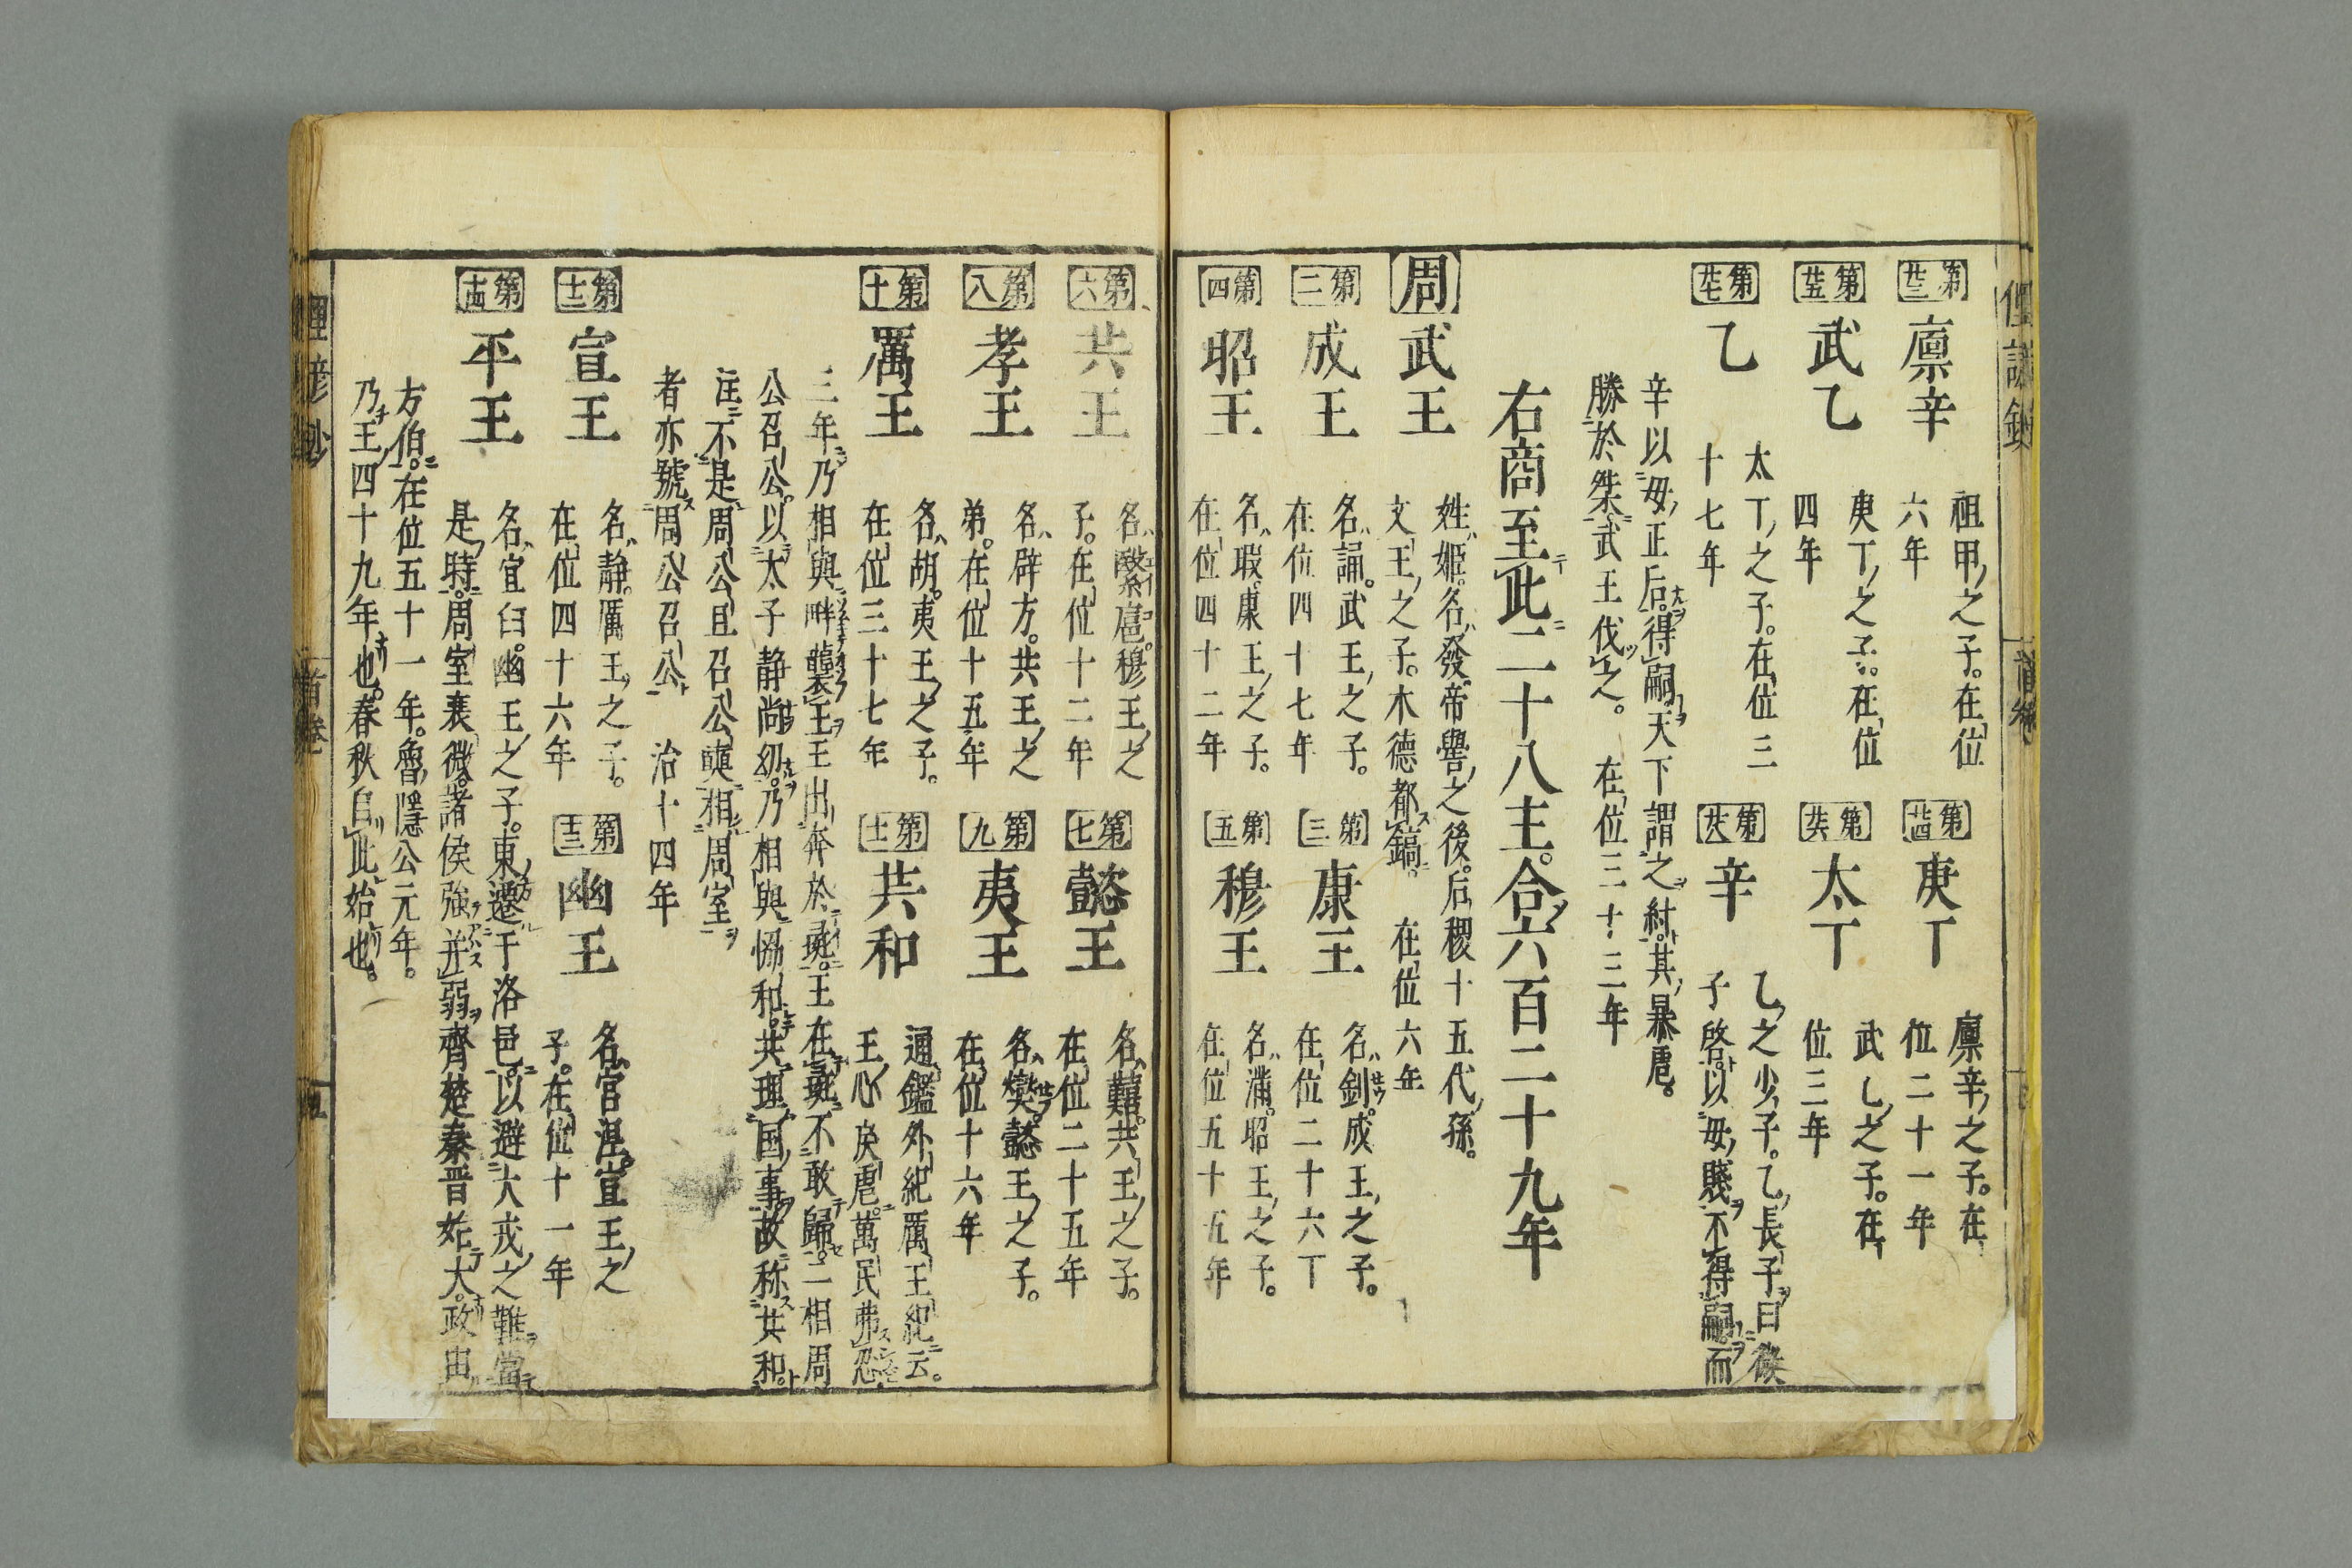 第廿三 廪辛 祖甲之子。在位
六年
第廿四 庚丁 廪辛之子。在
位二十一年
第廿五 武乙 庚丁之子。在位
四年
第廿六 太丁 武乙之子。在
位三年
第廿七 乙 太丁之子。在位三
十七年
第廿八 辛 乙之少子。乙長子曰微
子啓。以母賤不得嗣。而
辛以母正后。得嗣。天下謂之紂。其暴虐。
勝於桀。武王伐之。 在位三十三年
右商至此二十八主。合六百二十九年
周 武王 姓姬。名發。帝嚳之後。后稷十五代孫。
文王之子。木德都鎬。 在位六年
第二 成王 名誦。武王之子。
在位四十七年
第三 康王 名釗。成王之子。
在位二十六丁
第四 昭王 名瑕。康王之子。
在位四十二年
第五 穆王 名滿。昭王之子。
在位五十五年
第六 共王 名繄扈。穆王之
子。在位十二年
第七 懿王 名囏。共王之子。
在位二十五年
第八 孝王 名辟方。共王之
弟。在位十五年
第九 夷王 名燮。懿王之子。
在位十六年
第十 厲王 名胡。夷王之子。
在位三十七年
第十一 共和 通鑑外紀厲王紀云。
王心戾虐。萬民弗忍。
三年乃相與畔襲王。王出奔於彘。王在彘不敢歸。二相周
公召公。以太子静尚幼。乃相與恊和。共理国事。故称共和。
注不是周公旦召公奭相周室。
者亦號周公召公 治十四年
第十二 宣王 名静。厲王之子。
在位四十六年
第十三 幽王 名宮湼。宣王之
子。在位十一年
第十四 平王 名宜臼。幽王之子。東遷于洛邑。以避犬戎之難。當
是時。周室衰微。諸侯強并弱。齊楚秦晋始大。政由
方伯。在位五十一年。魯隱公元年。
乃王四十九年也。春秋自此始也。
首卷